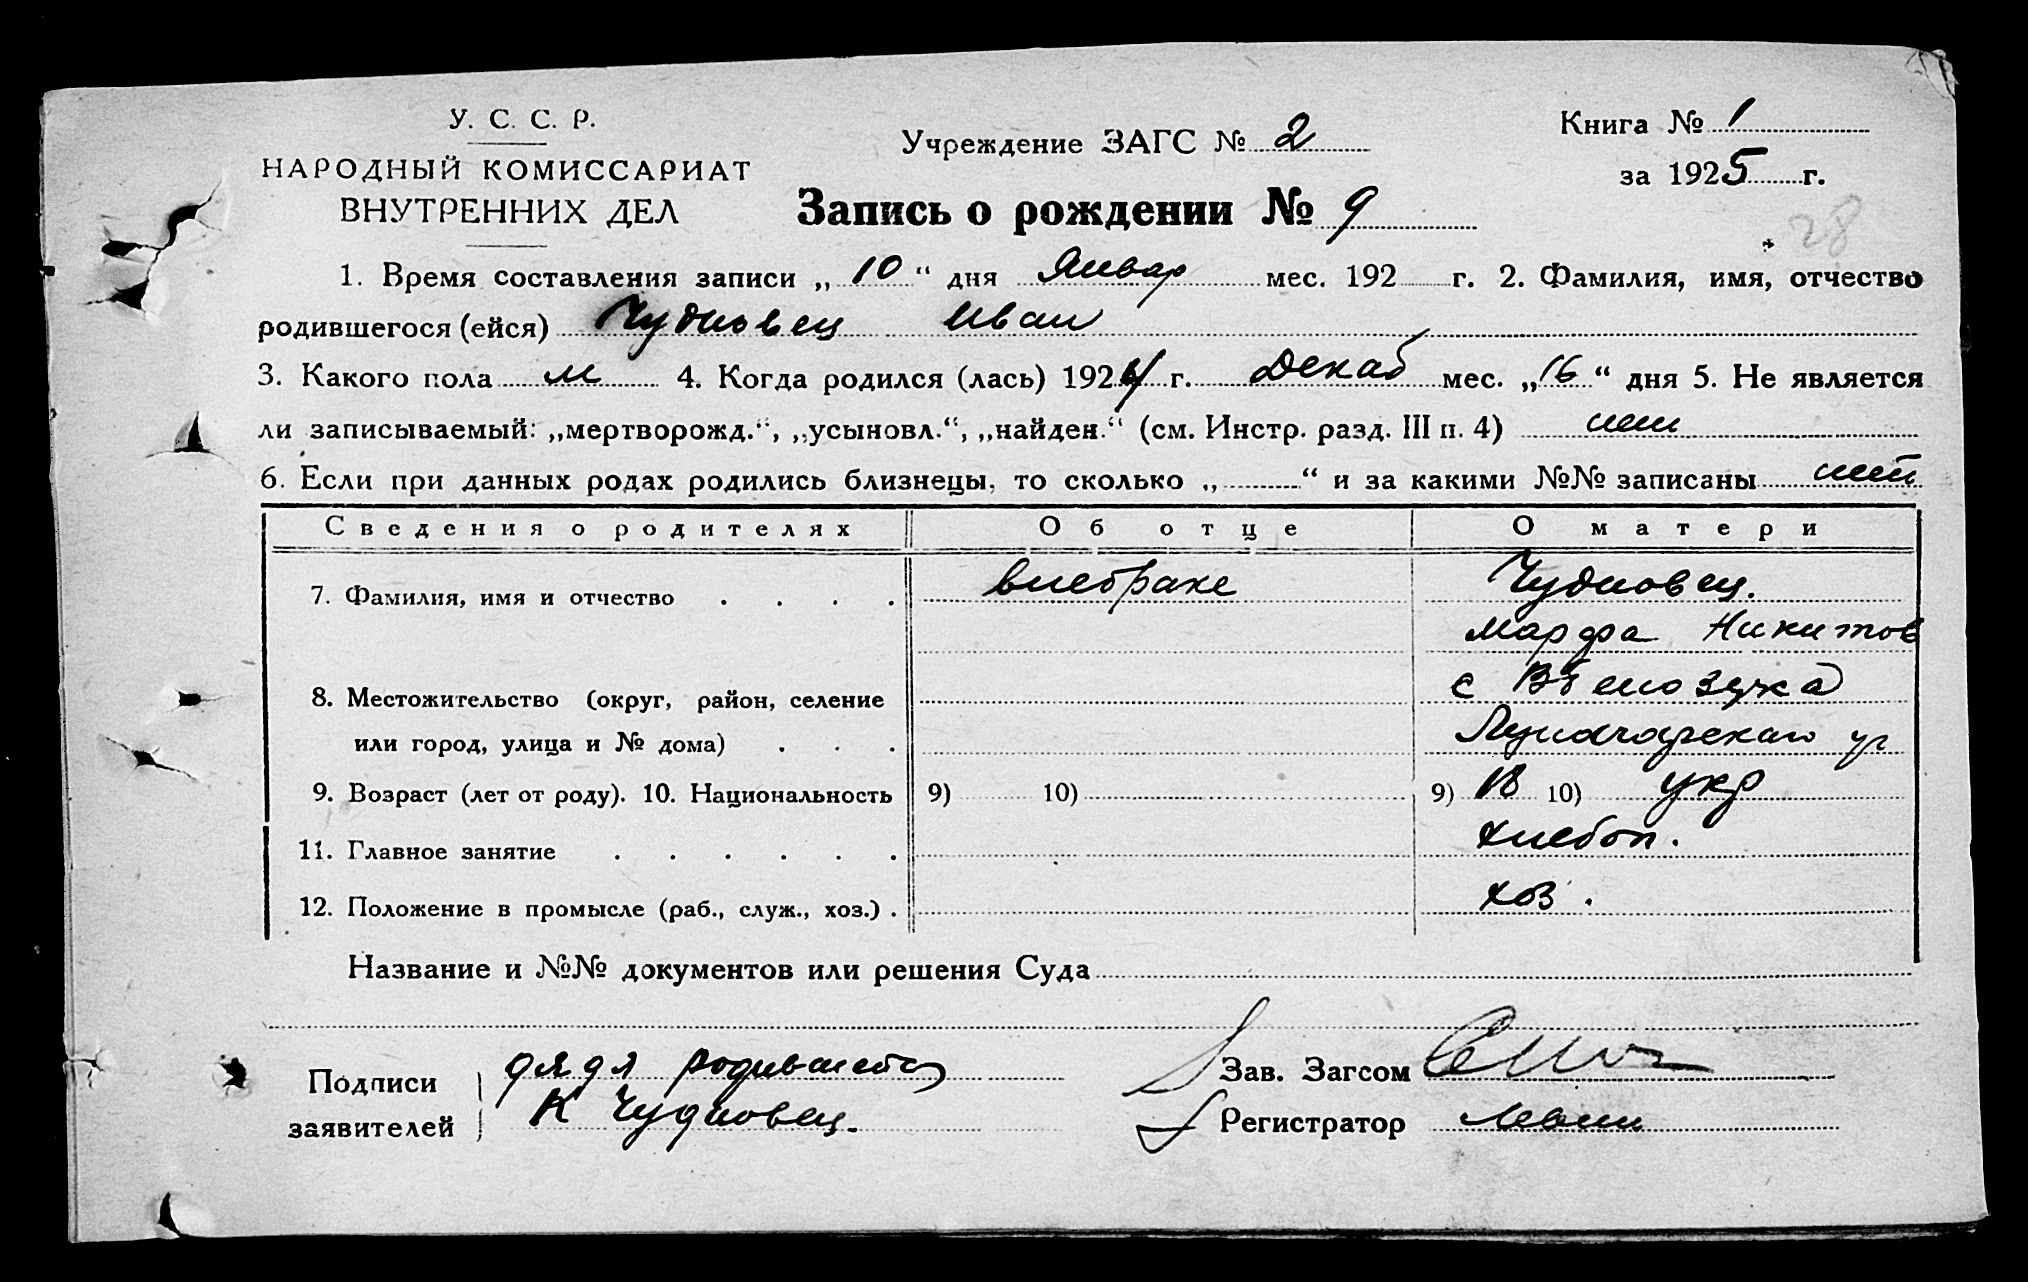 У. С. С. Р.
НАРОДНЫЙ КОМИССАРИАТ
ВНУТРЕННИХ ДЕЛ
Учреждение ЗАГС № 2
Запись о рождении № 9
Книга № 1
за 1925 г.
28
1. Время составления записи „10“ дня Январ мес. 192 г. 2. Фамилия, имя, отчество
родившегося (ейся) Чудновец Иван
3. Какого пола м 4. Когда родился (лась) 1924 г. Декаб мес. „16“ дня 5. Не является
ли записываемый: „мертворожд.“, „усыновл.“, „найден.“ (см. Инстр. разд. III п. 4) нет
6. Если при данных родах родились близнецы, то сколько „ “ и за какими №№ записаны нет
Сведения о родителях Об отце О матери
7. Фамилия, имя и отчество . . . . внебраке Чудновец.
Марфа Никитов
8. Местожительство (округ, район, селение с
или город, улица и № дома) . . .
9. Возраст (лет от роду). 10. Национальность 9) 10) 9) 18 10) укр
11. Главное занятие . . . . . . хлебоп.
12. Положение в промысле (раб., служ., хоз.) . хоз.
Название и №№ документов или решения Суда
Подписи дядя родившегося
заявителей К Чудновец.
Зав. Загсом
Регистратор